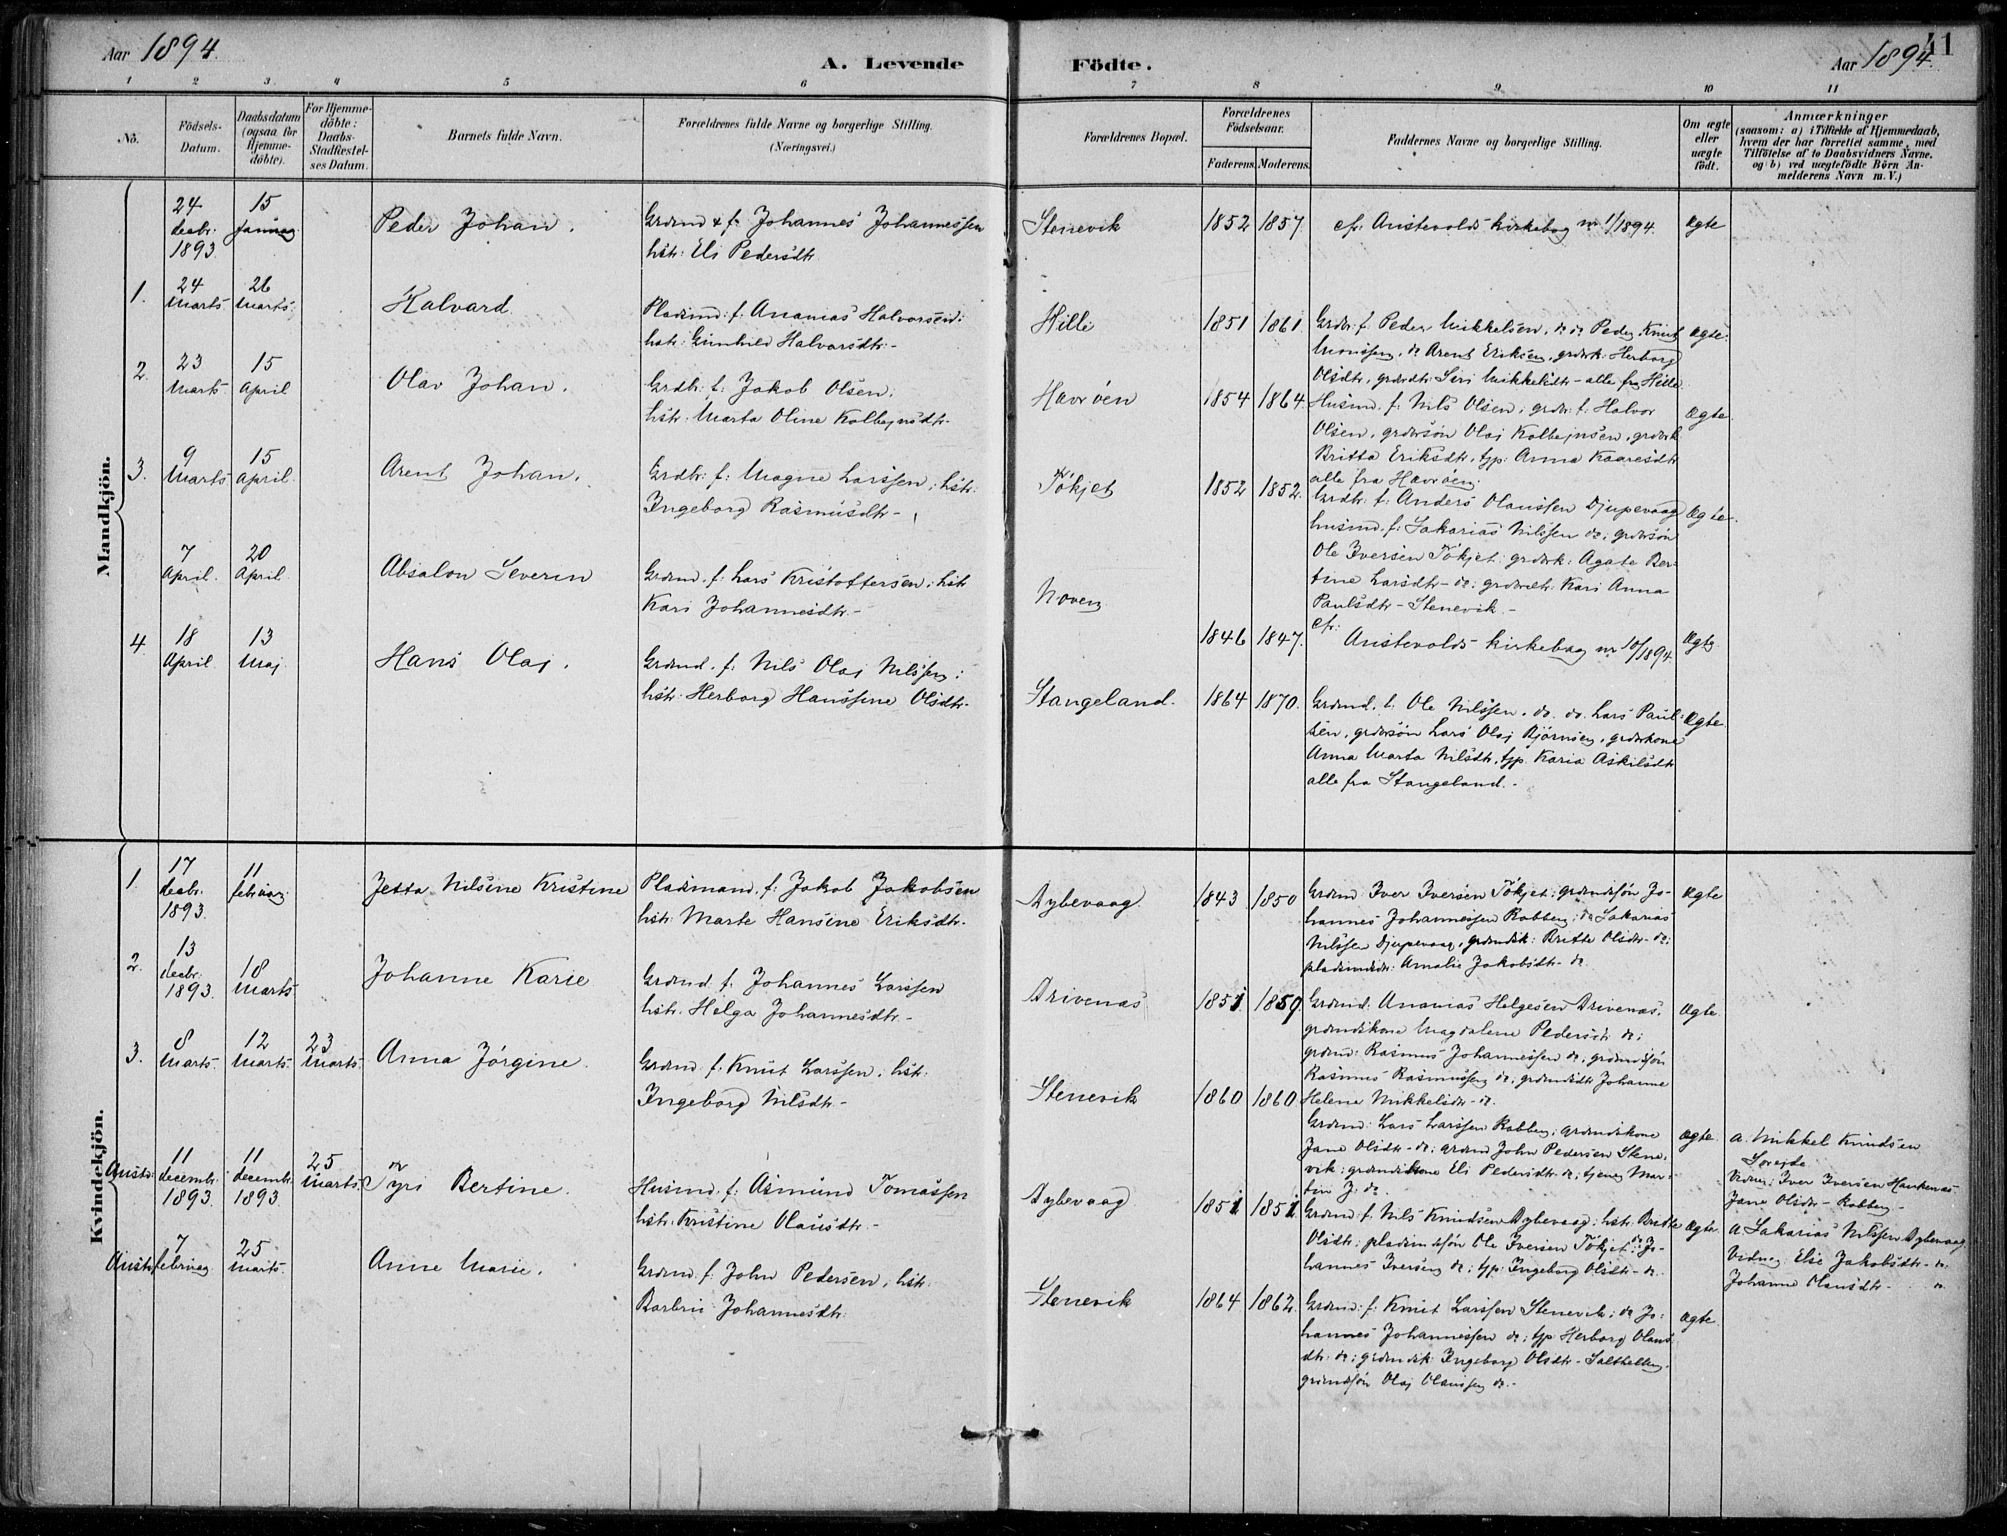 Aar 1894.
A. Levende Födte.
Aar 1894.
41
1 2 3. 4 5 6 7 8 9 10 11
No.
Födsels-Datum.
Daabsdatum (ogsaa for Hjemmedöbte).
For Hjemmedöbte: Daabs-Stadfæstelses Datum.
Barnets fulde Navn.
Forældrenes fulde Navne og borgerlige Stilling. (Næringsvei.)
Forældrenes Bopæl.
Forældrenes Födselsaar.
Faderens.
Moderens.
Faddernes Navne og borgerlige Stilling.
Om ægte eller uægte födt.
Anmærkninger
(saasom: a) i Tilfælde af Hjemmedaab,
hvem der har forrettet samme, med
Tilföielse af to Daabsvidners Navne.
og b) ved uægtefödte Börn Anmelderens Navn m. V.)
Mandkjön.
24 decbr. 1893
15 januar
Peder Johan.
Grdmd & f. Johannes Johannessen
hstr: Eli Pedersdtr
Stenevik
1852 1857.
cfr. Austevolds kirkebog nr 1/1894.
Ægte
1.
24 Marts
26 Marts.
Halvard
Pladsmd: f. Ananias Halvorsen:
hstr: Gunhild Halvorsdtr.-
Hille
1851 1861.
Grdbr. f. Peder Mikkelsen, do do Peder Knut
Monssen, do Arent Eriksen, grdbrk: Herborg
Olsdtr, grdbrdtr: Siri Mikkelsdtr - alle fra Hille.
Ægte.
2.
23 Marts
15 April
Olav Johan.
Grdbr. f: Jakob Olsen:
hstr: Marta Oline Kolbejnsdtr.
Havrøen
1854 1864.
Husmd. f: Nils Olsen, grdbr. f: Halvor
Olsen, grdbrsøn Olaj Kolbejnsen, grdbrk
Britta Eriksdtr, tjp: Anna Kaaresdtr
alle fra Havrøen.
Ægte.
3.
9 Marts
15 April.
Arent Johan.
Grdbr: f: Magne Larssen; hstr:
Ingeborg Rasmusdtr -
Tøkjet
1852 1852.
Grdbr: f: Anders Olaussen Djupevaag
husmd. f: Sakarias Nilssen do; grdbrsøn
Ole Iversen Tøkjet: grdbrk: Agate Bertine
Larsdtr - do; grdbrdtr: Kari Anna
Paulsdtr - Stenevik. -
Ægte.
7 April.
20 April.
Absalon Severin
Grdmd. f: Lars Kristoffersen; hstr
Kari Johannesdtr.-
1846 1847.
cfr: Austevolds kirkebog nr 10/1894
Ægte
4.
18 April.
13 Maj.
Hans Olaj.
Grdmd. f: Nils Olaj Nilssen;
hstr: Herborg Hanssine Olsdtr.
Stangeland.
1864 1870.
Grdmd. f: Ole Nilssen, do. do. Lars Paulsen,
grdbrsøn Lars Olaj Bjørnsen, grdbrkone
Anna Marta Nilsdtr, tjp. Karia Askilsdtr
alle fra Stangeland. -
Ægte
Kvindekjön.
1.
17 decbr. 1893.
11 februar.
Jetta Nilsine Kristine
Pladsmand. f: Jakob Jakobsen
hstr: Marte Hansine Eriksdtr.
Dybevaag
1843 1850
Grdmd: Iver Iversen Tøkjet; grdmdsøn Johannes
Johannessen Rabben; do Sakarias
Nilssen Djupevaag, grdmdsk: Britte Olsdtr - do;
pladsmdsdtr: Amalie Jakobsdtr - do
Ægte
2.
13 decbr. 1893.
18 Marts
Johanne Karie
Grdmd f. Johannes Larssen
hstr. Helga Johannesdtr. -
Drivenæs
1851 1859.
Grdmd: Ananias Helgesen Drivenæs,
grdmdskone Magdalene Pedersdtr do;
grdmd: Rasmus Johannessen do, grdmdsøn
Rasmus Rasmussen do; grdmdsdtr Johanne
Helene Mikkelsdtr - do.
Ægte
3.
8 Marts.
12 Marts.
23 Marts.
Anna Jørgine.
Grdmd. f. Knut Larssen. hstr.
Ingeborg Nilsdtr.-
Stenevik
1860 1860
Grdmd: Lars Larssen Rabben; grdmdskone
Jane Olsdtr - do; grdmd John Pedersen Stenevik;
grdmdskone Eli Pedersdtr. do; tjener Martin
J: do.
Ægte.
a. Mikkel Knudsen
Vidner: Iver Iversen Haukenæs
Jane Olsdtr - Rabben
Austv:
11 decembr. 1893.
11 decembr 1893.
25 Marts
Syri Bertine.
Husmd. f: Asmund Tomassen
hstr: Kristine Olausdtr. -
Dybevaag
1851 1851.
Grdmd f. Nils Knudsen Dybevaag; hstr. Britte
Olsdtr; pladsmdsøn Ole Iversen Tøkjet; do Johannes
Iversen do; tjp: Ingeborg Olsdtr - do.
Ægte.
a Sakarias Nilssen Dybevaag
Vidner Else Jakobsdtr - do:
Johanne Olausdtr - do
Austv.
7 februar
25 Marts.
Anne Marie.
Grdmd. f: John Pedersen, hstr.
Barbrii Johannesdtr.
Stenevik
1864 1862.
Grdmd: f: Knut Larssen Stenevik; do Johannes
Johannessen do; tjp Herborg Olausdtr
do; grdmdsk: Ingeborg Olsdtr - Salthellen,
grdmdsøn Olaj Olaussen do.-
Ægte.